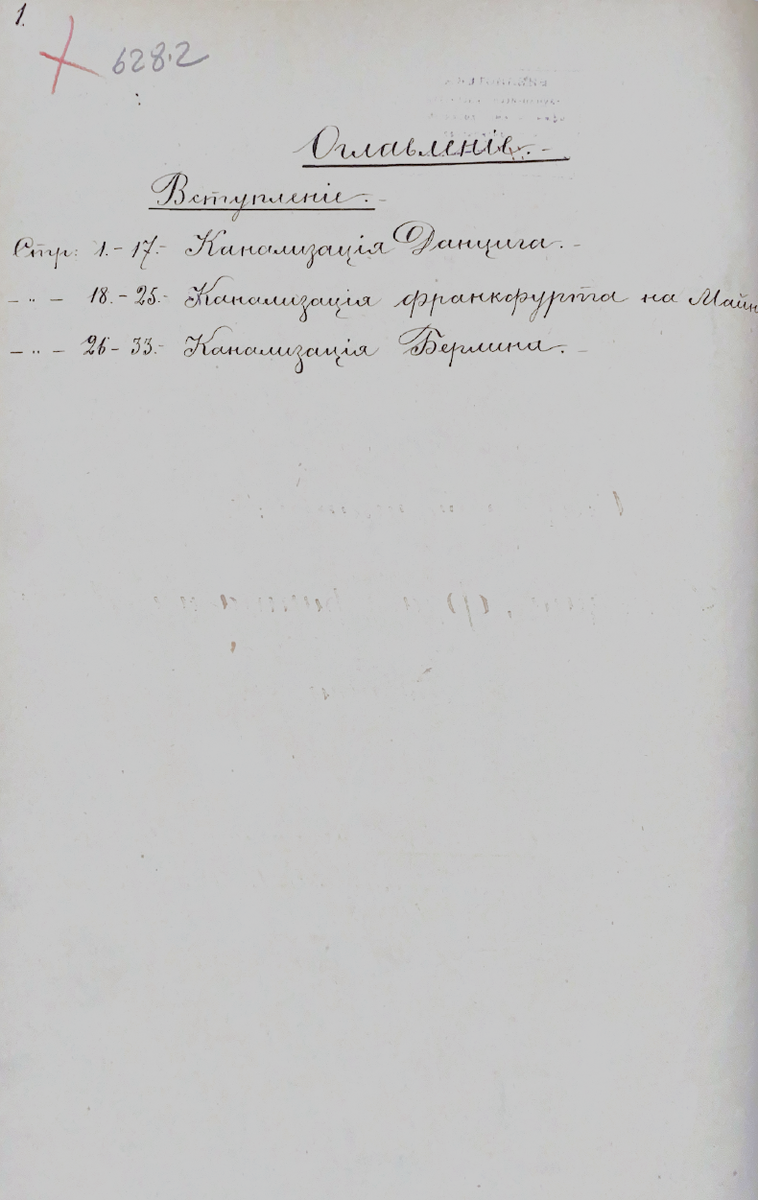 1.
628.2
Оглавленіе.-
Вступленіе.-
Стр: 1.- 17.- Канализація Данцига.-
- " - 18.- 25.- Канализація франкфурта на Майн
- " - 26 - 33.- Канализація Берлина.-